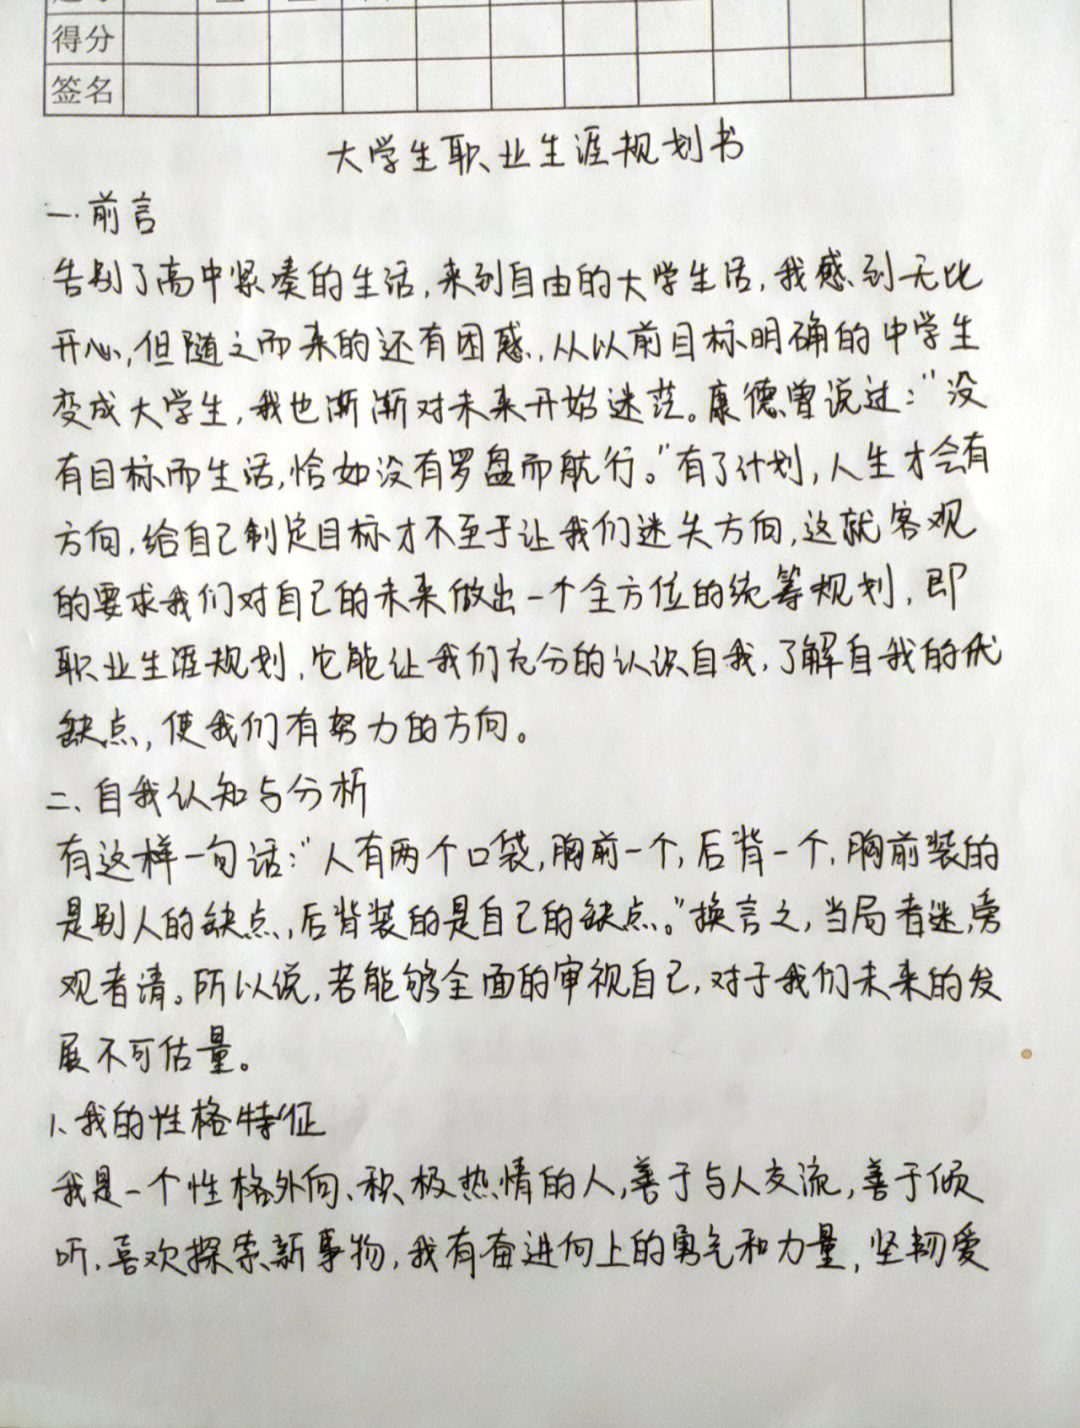 得分
签名
大学生职业生涯规划书
一.前言
告别了高中紧凑的生活,来到自由的大学生活,我感到无比
开心,但随之而来的还有困惑,从以前目标明确的中学生
变成大学生,我也渐渐对未来开始迷茫。康德曾说过:"没
有目标而生活,恰如没有罗盘而航行。"有了计划,人生才会有
方向,给自己制定目标才不至于让我们迷失方向,这就客观
的要求我们对自己的未来做出一个全方位的统筹规划,即
职业生涯规划,它能让我们充分的认识自我,了解自我的优
缺点,使我们有努力的方向。
二、自我认知与分析
有这样一句话:"人有两个口袋,胸前一个,后背一个,胸前装的
是别人的缺点,后背装的是自己的缺点。"换言之,当局者迷,旁
观者清。所以说,若能够全面的审视自己,对于我们未来的发
展不可估量。
1、我的性格特征
我是一个性格外向、积极热情的人,善于与人交流,善于倾
听,喜欢探索新事物,我有奋进向上的勇气和力量,坚韧爱